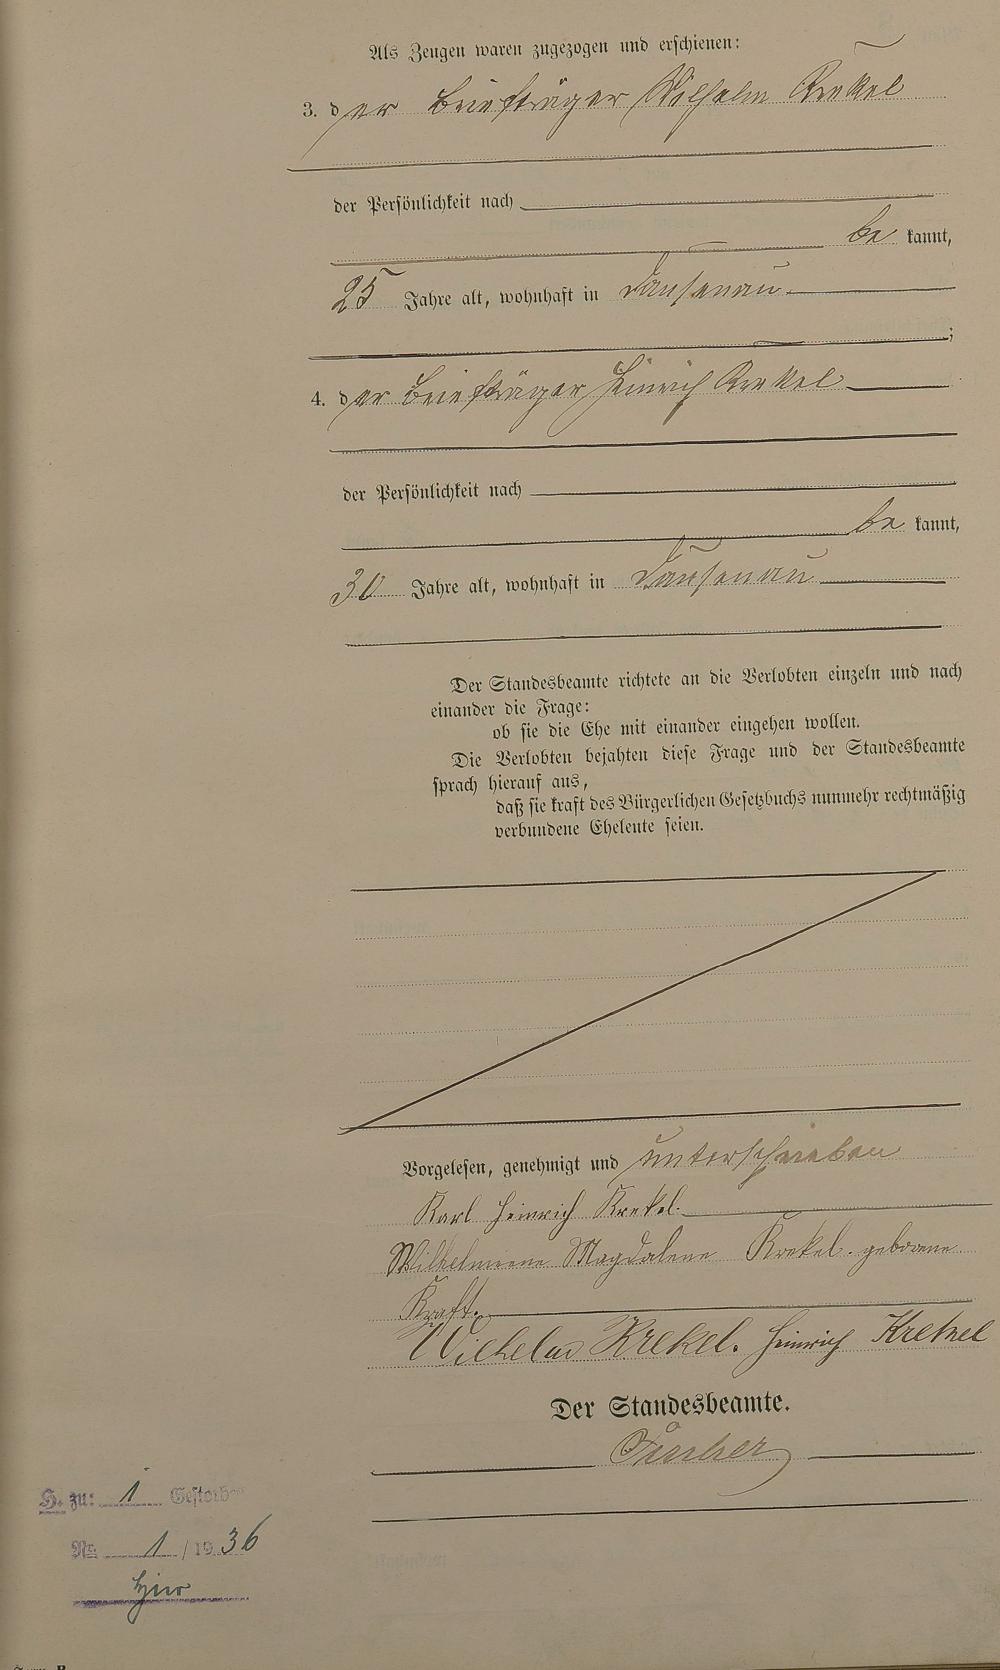 Als Zeugen waren zugezogen und erschienen:
3. der Briefträger Wilhelm Krekel
der Persönlichkeit nach
be kannt,
25 Jahre alt, wohnhaft in Dausenau
;
4. der Briefträger Heinrich Krekel
der Persönlichkeit nach
be kannt,
30 Jahre alt, wohnhaft in Dausenau
Der Standesbeamte richtete an die Verlobten einzeln und nach
einander die Frage:
ob sie die Ehe mit einander eingehen wollen.
Die Verlobten bejahten diese Frage und der Standesbeamte
sprach hierauf aus,
daß sie kraft des Bürgerlichen Gesetzbuchs nunmehr rechtmäßig
verbundene Eheleute seien.
Vorgelesen, genehmigt und unterschrieben
Karl Heinrich Krekel.
Wilhelmine Magdalene Krekel. geborene
Kraft.
Wilhelm Krekel. Heinrich Krekel
Der Standesbeamte.
H. zu: 1 Gestorben
Nr. 1 / 1936
hier